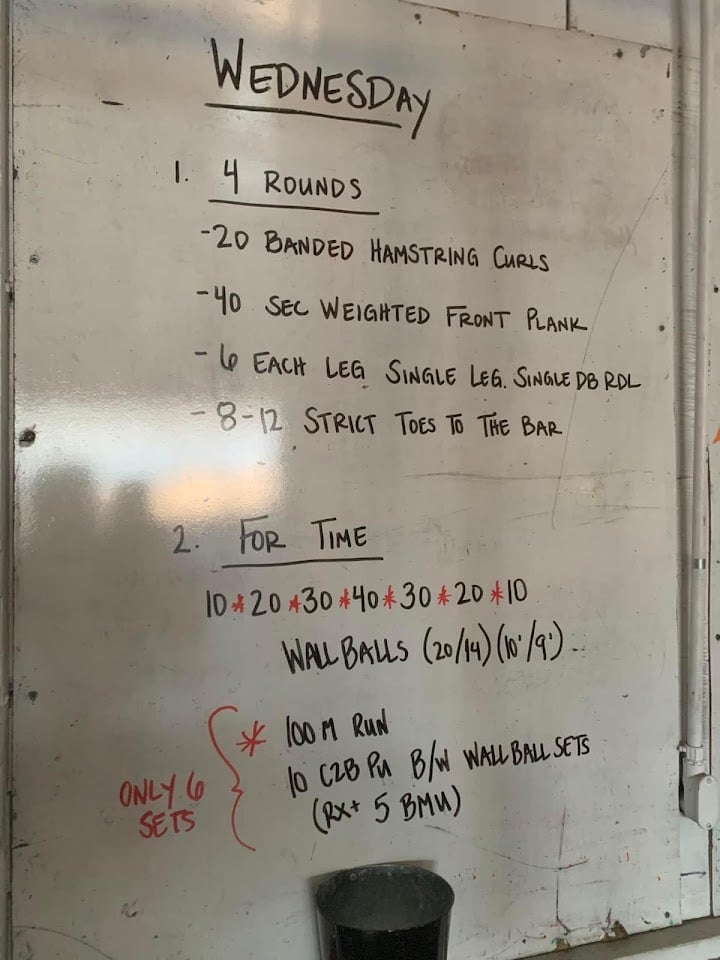 WEDNESDAY
1. 4 ROUNDS
-20 BANDED HAMSTRING CURLS
-40 SEC WEIGHTED FRONT PLANK
-6 EACH LEG SINGLE LEG. SINGLE DB RDL
-8-12 STRICT TOES TO THE BAR
2. FOR TIME
10*20*30*40*30*20*10
WALL BALLS (20/14) (10'/9')
* 100 M RUN
10 C2B PU B/W WALL BALL SETS
(RX+ 5 BMU)
ONLY 6
SETS